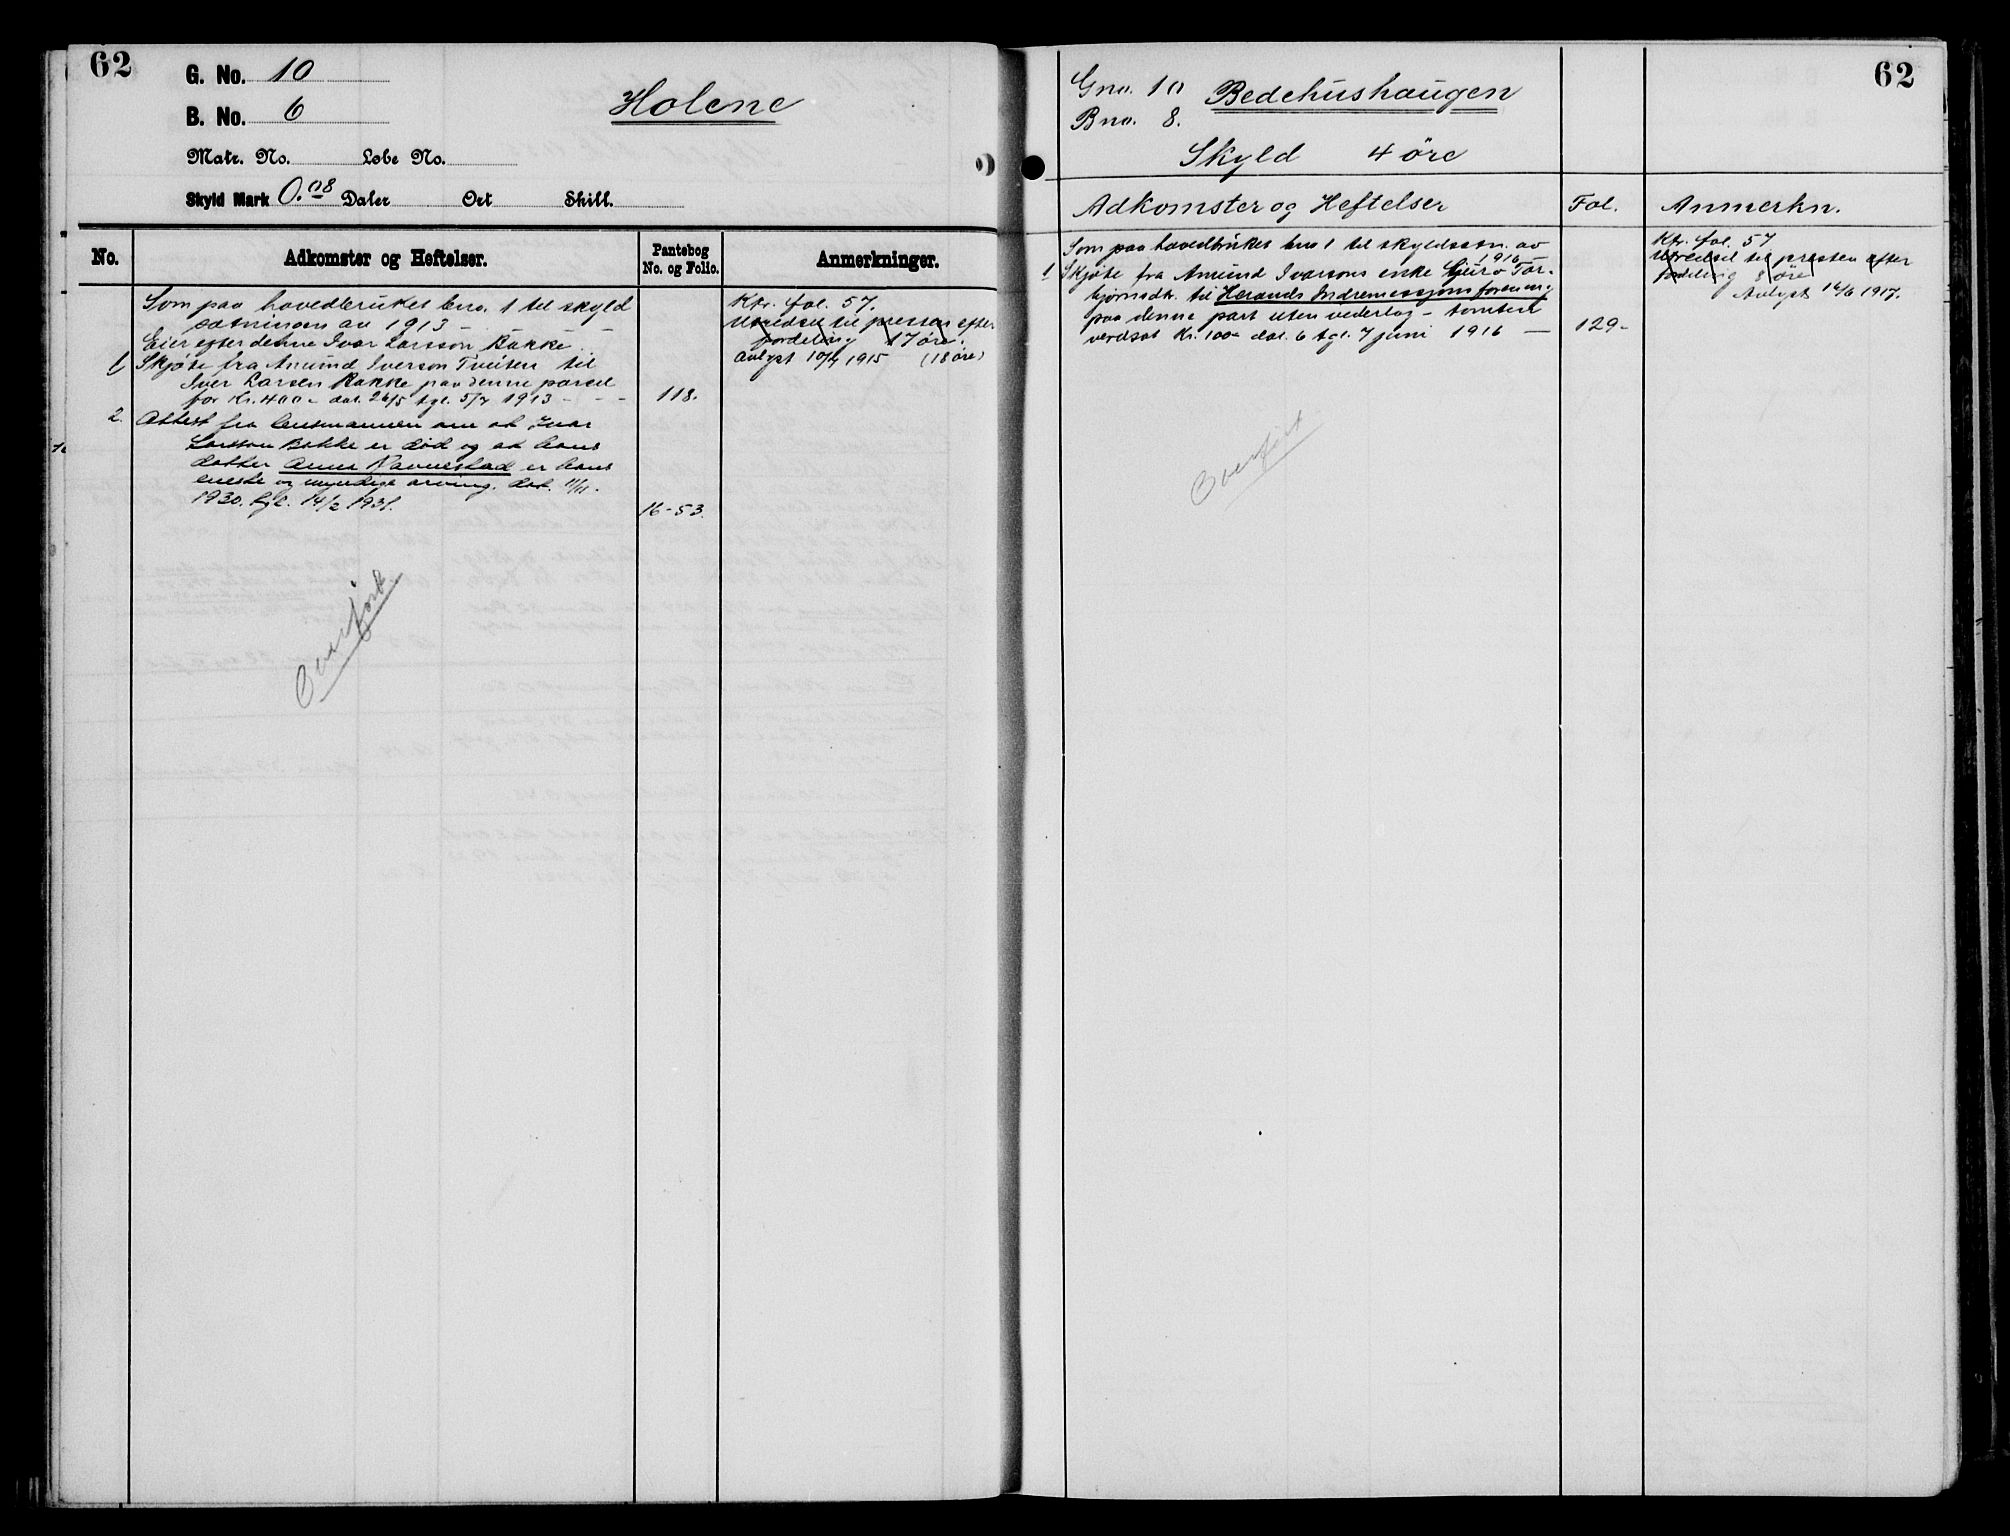 62
G. No. 10
B. No. 6
Holene
Matr. No. Løbe No.
Skyld Mark 0.08 Daler Ort Skill.
No. Adkomster og Heftelser. Pantebog No. og Folio. Anmerkninger.
Som paa hovedbruket bno. 1 til skyld
sætningen av 1913 –
Eier efter denne Ivar Larsson Bakke.
1 Skjøte fra Amund Iverson Tveiten til
Iver Larsen Bakke paa denne parsel
for Kr. 400 – dat. 26/5 tgl. 5/7 1913 - - - 118.
2. Attest fra lensmannen om at Ivar
Larsson Bakke er død og at hans
datter Anna Navnestad er hans
eneste og myndige arving. dat. 11/11.
1930. tgl. 14/2 1931. 16-53.
Kfr. fol. 57.
Utredsel til presten efter
fordeling 17 øre.
Avlyst 10/4 1915 (18 øre)
Overført
62
Gno. 10 Bedehushaugen
Bno. 8.
Skyld 4 øre
Adkomster og Heftelser Fol. Anmerkn.
Som paa hovedbruket bno 1 til skyldsætn. av
1916 –
1 Skjøte fra Amund Ivarsons enke Guro Tor-
bjørnsdtr. til Herands Indremissjonsforening
paa denne part uten vederlag – tomten
verdsat Kr. 100 – dat. 6 tgl. 7 juni 1916 – 129-
Kfr. fol. 57
Utredsel til presten efter
fordeling 8 øre
Avlyst 16/6 1917.
Overført